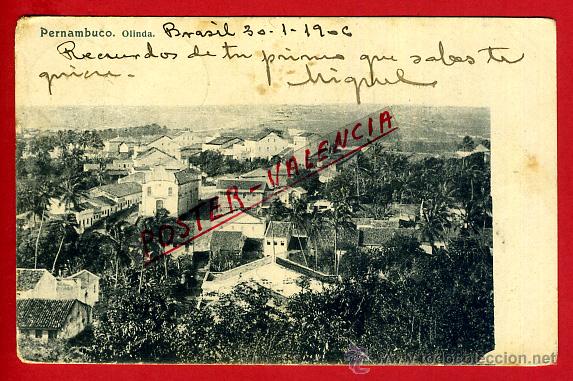 Pernambuco. Olinda. Brasil 30-1-1906
Recuerdos de tu primo que sabes te
quiere.
Miguel
POSTER-VALENCIA
todocoleccion.net